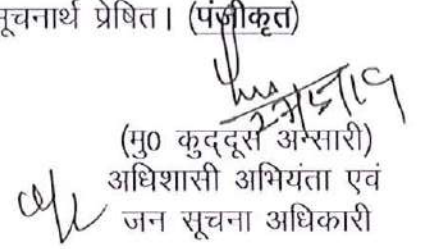 सूचनार्थ प्रेषित। (पंजीकृत)
(मु0 कुद्दूस अन्सारी)
अधिशासी अभियंता एवं
जन सूचना अधिकारी